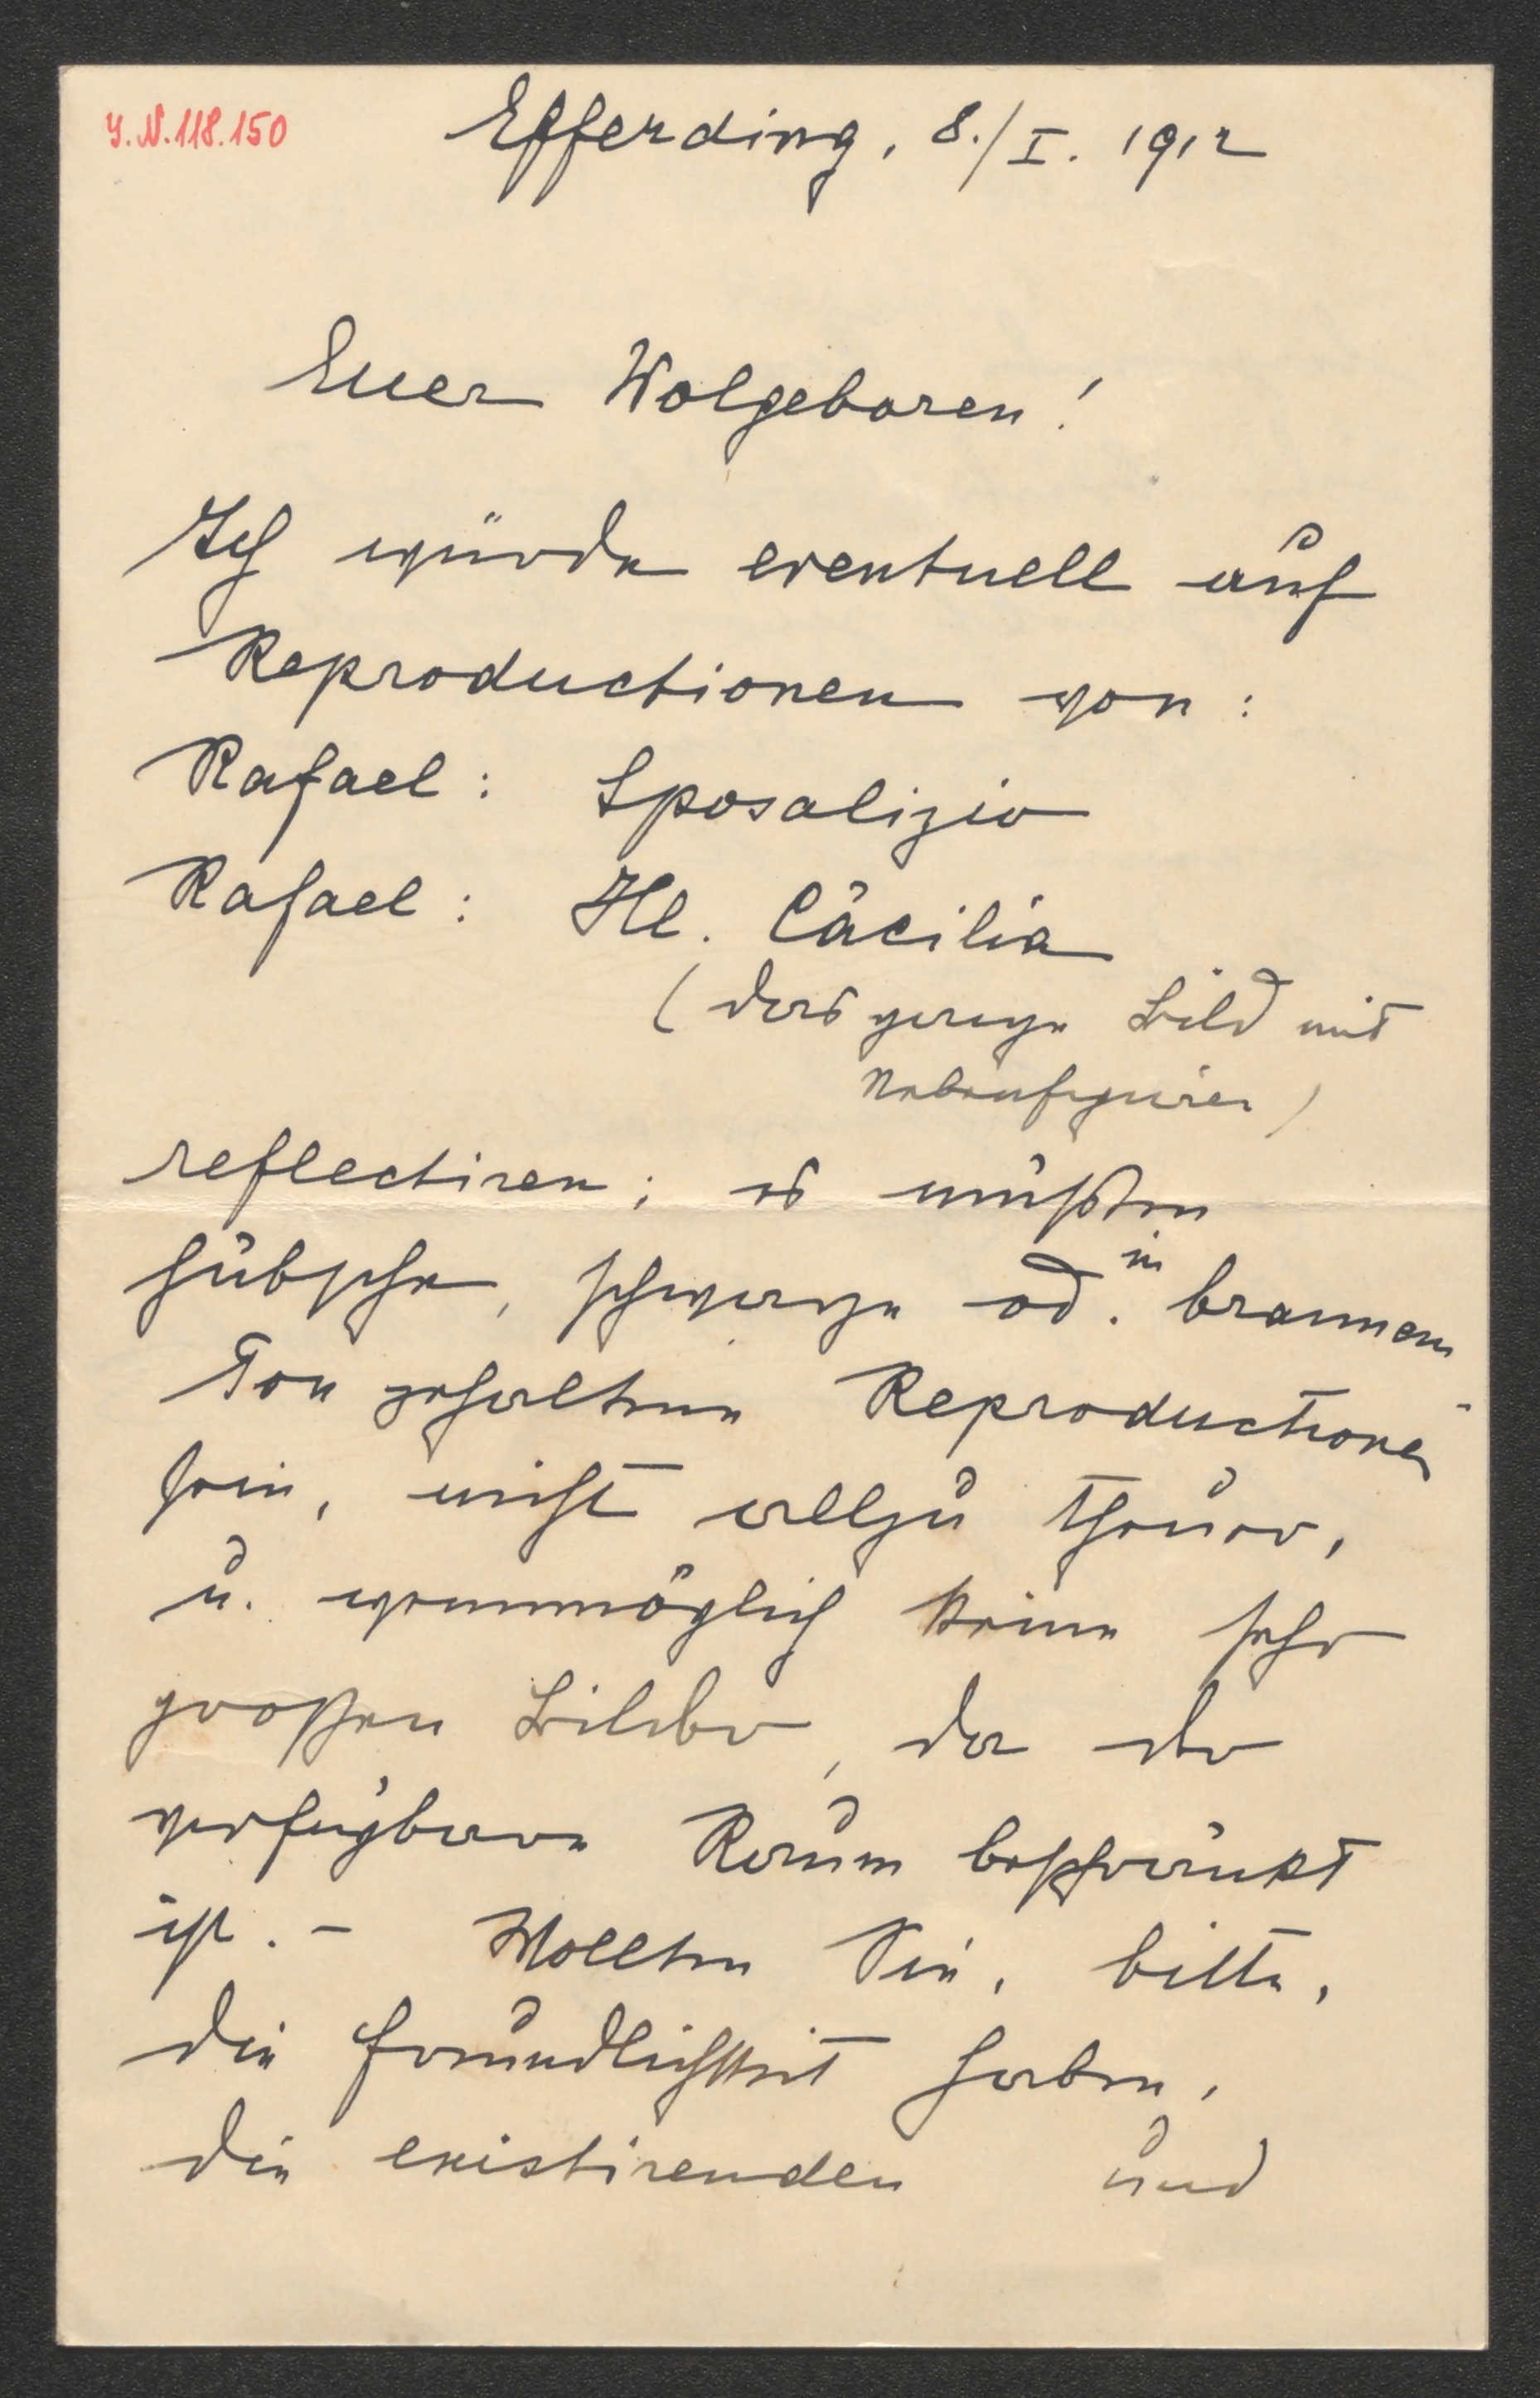 I.N.118.150
Efferding, 8./I. 1912
Euer Wolgeboren!
Ich würde eventuell auf
Reproductionen von:
Rafael: Sposalizio
Rafael: Hl. Cäcilia
(das ganze Bild mit
Nebenfiguren)
reflectiren; es müßten
hübsche, schwarze od. in braunem
Ton gehaltene Reproductionen
sein, nicht allzu theuer,
u. wenn möglich keine sehr
großen Bilder, da der
verfügbare Raum beschränkt
ist. – Wollten Sie, bitte,
die Freundlichkeit haben,
die existirenden und